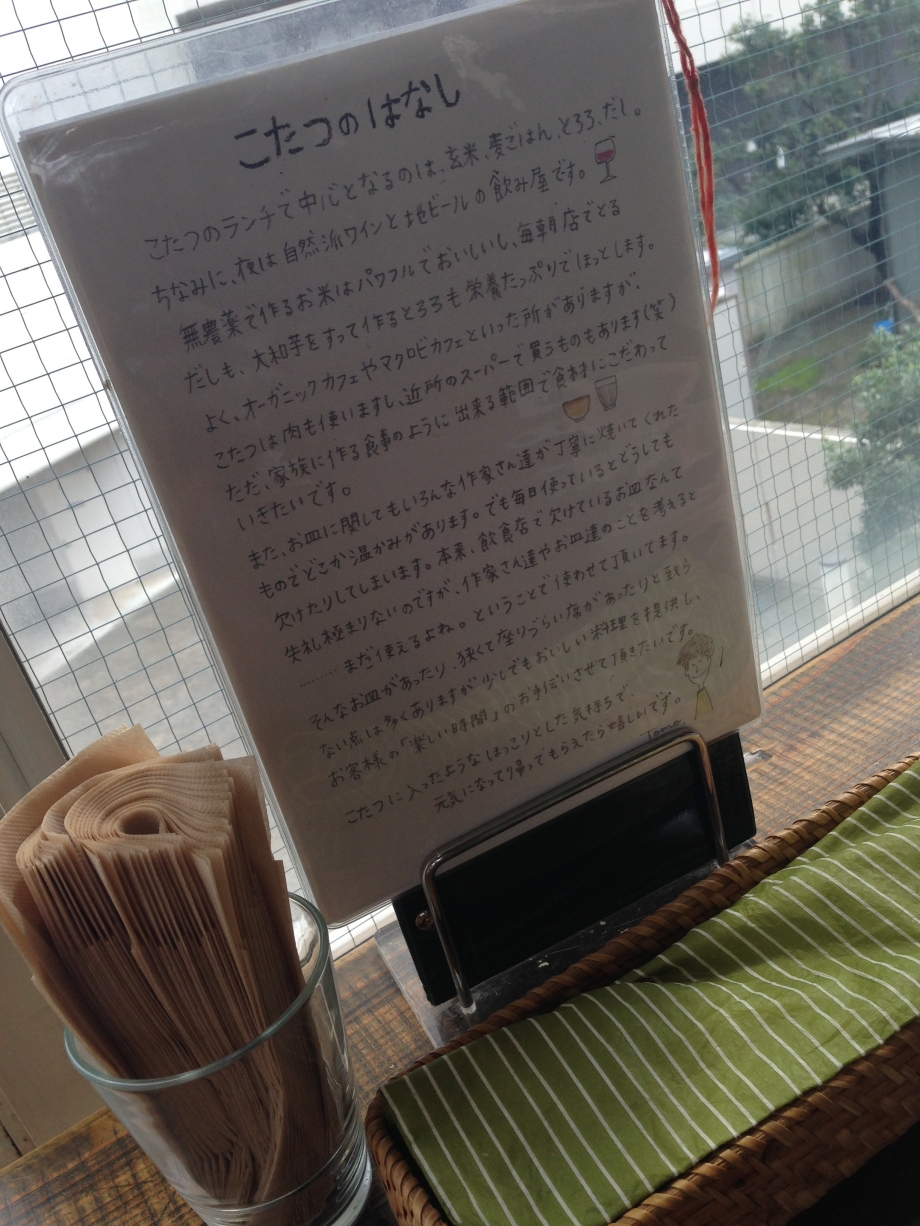 こたつのはなし
こたつのランチで中心となるのは、玄米、麦ごはん、とろろ、だし。
ちなみに、夜は自然派ワインと地ビールの飲み屋です。
無農薬で作るお米はパワフルでおいしいし、毎朝店でとる
だしも、大和芋をすって作るとろろも栄養たっぷりでほっとします。
よく、オーガニックカフェやマクロビカフェといった所がありますが、
こたつは肉も使いますし、近所のスーパーで買うものもあります(笑)
ただ、家族に作る食事のように出来る範囲で食材にこだわって
いきたいです。
また、お皿に関してもいろんな作家さん達が丁寧に焼いてくれた
ものでどこか温かみがあります。でも毎日使っているとどうしても
欠けたりしてしまいます。本来、飲食店で欠けているお皿なんて
失礼極まりないのですが、作家さん達やお皿達のことを考えると
………まだ使えるよね。ということで使わせて頂いてます。
そんなお皿があったり、狭くて座りづらい店があったりと至ら
ない点は多くありますが少しでもおいしい料理を提供し、
お客様の「楽しい時間」のお手伝いさせて頂きたいです。
こたつに入ったようなほっこりとした気持ちで、
元気になって帰ってもらえたら嬉しいです。
Tomo